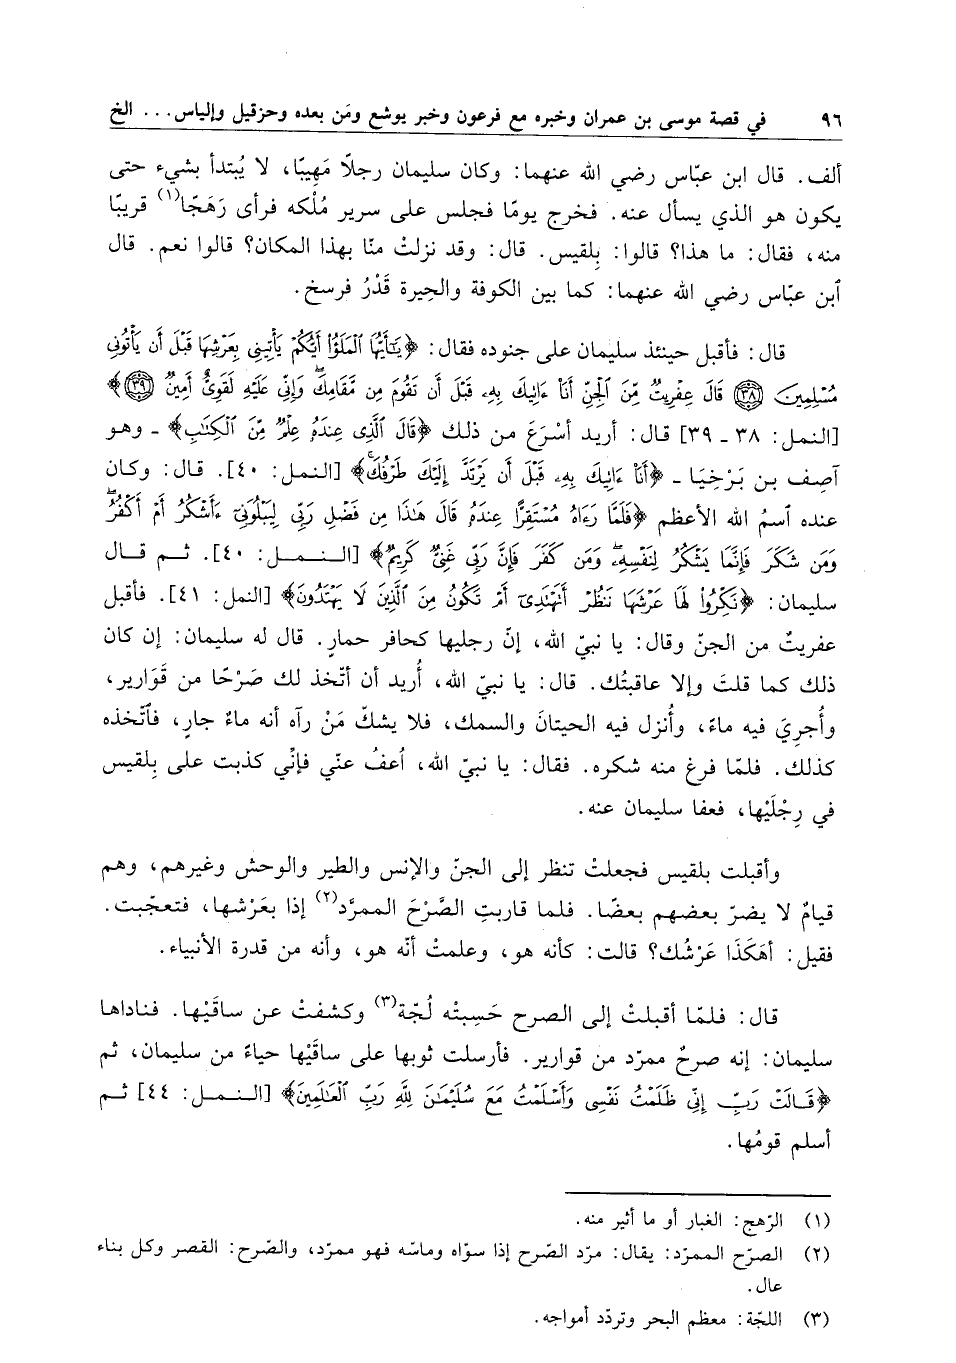 ٩٦ في قصة موسى بن عمران وخبره مع فرعون وخبر يوشع ومَن بعده وحزقيل وإلياس... الخ
ألف. قال ابن عبّاس رضي الله عنهما: وكان سليمان رجلاً مَهِيبًا، لا يُبتدأ بشيء حتى
يكون هو الذي يسأل عنه. فخرج يومًا فجلس على سرير مُلْكه فرأى رَهَجًا(١) قريبًا
منه، فقال: ما هذا؟ قالوا: بِلقيس. قال: وقد نزلتْ منّا بهذا المكان؟ قالوا نعم. قال
ٱبن عبّاس رضي الله عنهما: كما بين الكوفة والحِيرة قَدْرُ فرسخ.
قال: فأقبل حينئذ سليمان على جنوده فقال: ﴿يَٰٓأَيُّهَا ٱلْمَلَؤُا۟ أَيُّكُمْ يَأْتِينِى بِعَرْشِهَا قَبْلَ أَن يَأْتُونِى
مُسْلِمِينَ ﴿٣٨﴾ قَالَ عِفْرِيتٌ مِّنَ ٱلْجِنِّ أَنَا۠ ءَاتِيكَ بِهِۦ قَبْلَ أَن تَقُومَ مِن مَّقَامِكَ ۖ وَإِنِّى عَلَيْهِ لَقَوِىٌّ أَمِينٌ ﴿٣٩﴾﴾
[النمل: ٣٨ - ٣٩] قال: أريد أسْرَعَ من ذلك ﴿قَالَ ٱلَّذِى عِندَهُۥ عِلْمٌ مِّنَ ٱلْكِتَٰبِ﴾ - وهو
آصِف بن بَرْخِيَا - ﴿أَنَا۠ ءَاتِيكَ بِهِۦ قَبْلَ أَن يَرْتَدَّ إِلَيْكَ طَرْفُكَ ۚ﴾ [النمل: ٤٠]. قال: وكان
عنده ٱسمُ الله الأعظم ﴿فَلَمَّا رَءَاهُ مُسْتَقِرًّا عِندَهُۥ قَالَ هَٰذَا مِن فَضْلِ رَبِّى لِيَبْلُوَنِىٓ ءَأَشْكُرُ أَمْ أَكْفُرُ ۖ
وَمَن شَكَرَ فَإِنَّمَا يَشْكُرُ لِنَفْسِهِۦ ۖ وَمَن كَفَرَ فَإِنَّ رَبِّى غَنِىٌّ كَرِيمٌ﴾ [النمل: ٤٠]. ثم قال
سليمان: ﴿نَكِّرُوا۟ لَهَا عَرْشَهَا نَنظُرْ أَتَهْتَدِىٓ أَمْ تَكُونُ مِنَ ٱلَّذِينَ لَا يَهْتَدُونَ﴾ [النمل: ٤١]. فأقبل
عفريتٌ من الجنّ وقال: يا نبيّ الله، إنّ رجليها كحافر حمارٍ. قال له سليمان: إن كان
ذلك كما قلتَ وإلا عاقبتُك. قال: يا نبيّ الله، أُريد أن أتّخذ لك صَرْحًا من قَوَارير،
وأُجرِيَ فيه ماءً، وأُنزل فيه الحيتانَ والسمك، فلا يشكّ مَنْ رآه أنه ماءٌ جارٍ، فٱتّخذه
كذلك. فلمّا فرغ منه شكره. فقال: يا نبيّ الله، ٱعفُ عنّي فإنّي كذبت على بِلقيس
في رِجْلَيْها، فعفا سليمان عنه.
وأقبلت بلقيس فجعلتْ تنظر إلى الجنّ والإنس والطير والوحش وغيرهم، وهم
قيامٌ لا يضرّ بعضهم بعضًا. فلما قاربتِ الصَّرْحَ الممرَّد(٢) إذا بعَرْشها، فتعجّبت.
فقيل: أهَكَذَا عَرْشُك؟ قالت: كأنه هو، وعلمتْ أنّه هو، وأنه من قدرة الأنبياء.
قال: فلمّا أقبلتْ إلى الصرح حَسِبتْه لُجّة(٣) وكشفتْ عن ساقَيْها. فناداها
سليمان: إنه صرحٌ ممرّد من قوارير. فأرسلت ثوبها على ساقَيْها حياءً من سليمان، ثم
﴿قَالَتْ رَبِّ إِنِّى ظَلَمْتُ نَفْسِى وَأَسْلَمْتُ مَعَ سُلَيْمَٰنَ لِلَّهِ رَبِّ ٱلْعَٰلَمِينَ﴾ [النمل: ٤٤] ثم
أسلم قومُها.
(١) الرّهج: الغبار أو ما أثير منه.
(٢) الصرّح الممرّد: يقال: مرّد الصّرح إذا سوّاه وماسّه فهو ممرّد، والصّرح: القصر وكل بناء
عال.
(٣) اللجّة: معظم البحر وتردّد أمواجه.